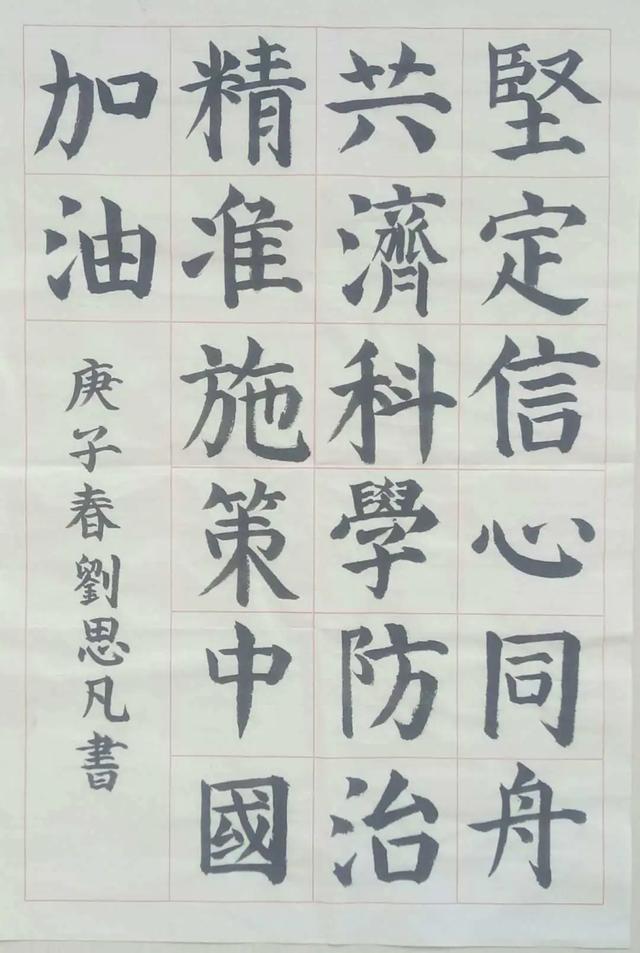 堅定信心同舟
共濟科學防治
精准施策中國
加油
庚子春劉思凡書